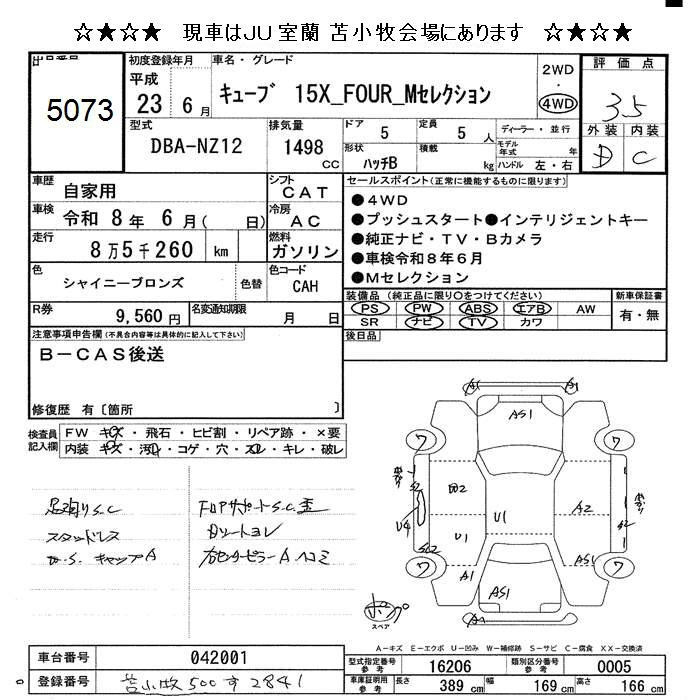 ☆★☆★ 現車はJU室蘭 苫小牧会場にあります ☆★☆★
出品番号 初度登録年月 車名・グレード 2WD 評価点
5073 平成 23 6月 キューブ 15X_FOUR_Mセレクション 4WD 3.5
型式 排気量 ドア 5 定員 5人 ディーラー・並行 外装 内装
DBA-NZ12 1498 CC 形状 ハッチB 積載 kg モデル年式 年 ハンドル 左・右 D C
車歴 自家用 シフト CAT セールスポイント(正常に機能するものに限ります)
車検 令和 8年 6月( 日) 冷房 AC ●4WD
走行 8万5千260 km 燃料 ガソリン ●プッシュスタート●インテリジェントキー
●純正ナビ・TV・Bカメラ
色 シャイニーブロンズ 色替 色コード CAH ●車検令和8年6月
●Mセレクション
R券 9,560円 名変通知期限 月 日 装備品(純正品に限り○をつけてください) 新車保証書
PS PW ABS エアB AW 有・無
SR ナビ TV カワ
注意事項申告欄(不具合内容等は具体的に記入して下さい) 後日品
B-CAS後送
修復歴 有〔箇所 〕
検査員記入欄 FW キズ・飛石・ヒビ割・リペア跡・×要
内装 キズ・汚れ・コゲ・穴・スレ・キレ・破レ
足廻りS.C
スタッドレス
キャップA
FロアサポートS.C歪
右センターピラーAヘコミ
A1
AS1
ワ ワ
S2
U4
U1
A2
S2
U1
AS1
ワ A1 AS1 ワ
A
スペア
A-キズ E-エクボ U-凹み W-補修跡 S-サビ C-腐食 XX-交換済
車台番号 042001 型式指定番号 参考 16206 類別区分番号 参考 0005
登録番号 苫小牧 500 す 2841 車庫証明用 参考 長さ 389 cm 幅 169 cm 高さ 166 cm